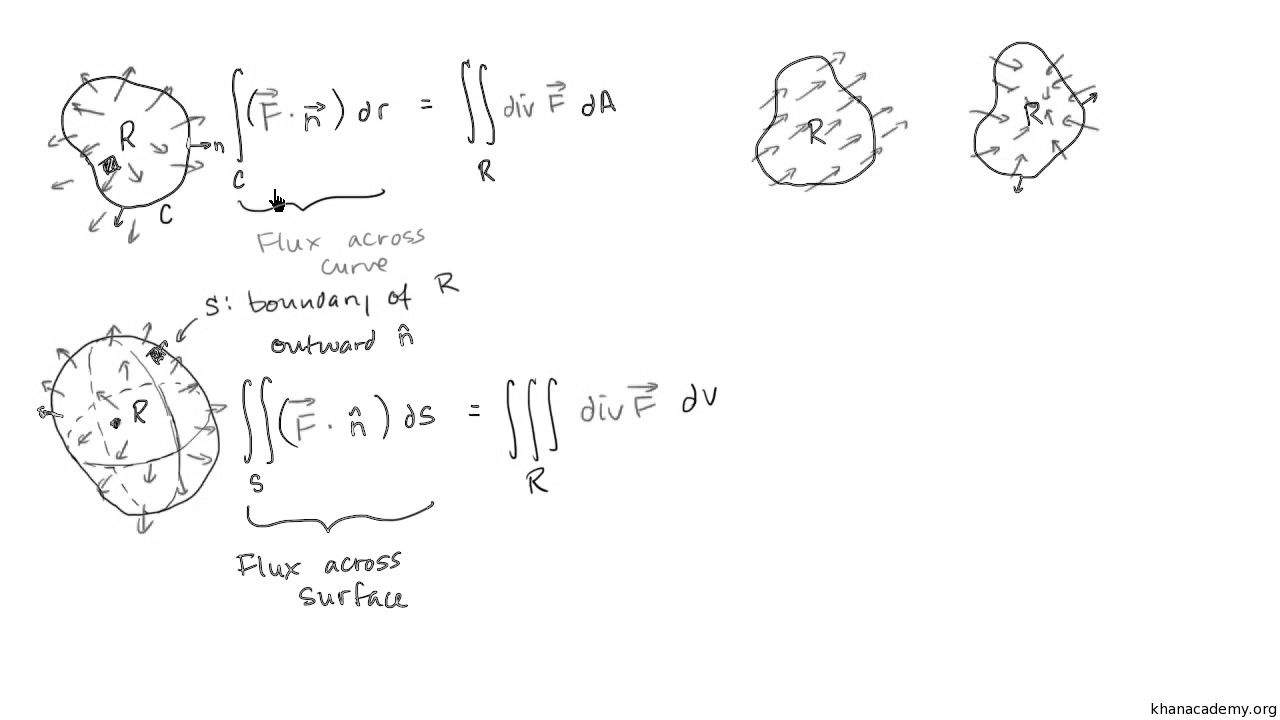 R
n
C
∫ (F⃗ · n⃗) dr = ∬ div F⃗ dA
C
R
Flux across
curve
R
R
S: boundary of R
outward n̂
R
∬ (F⃗ · n̂) dS = ∭ div F⃗ dv
S
R
Flux across
surface
khanacademy.org